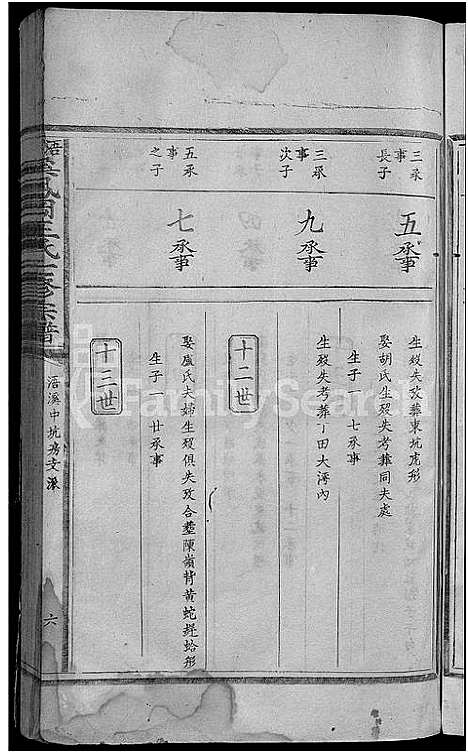 三承事長子
五承事
生歿失攷葬東坑虎形
娶胡氏生歿失考葬同夫處
生子一七承事
三承事次子
九承事
生歿失考葬丁田大灣內
十二世
五承事之子
七承事
娶盛氏夫婦生歿俱失攷合塟陳嶺背黃蛇趕蛤形
生子一廿承事
十三世
氏
修宗譜
浯溪中坑
六
FamilySearch